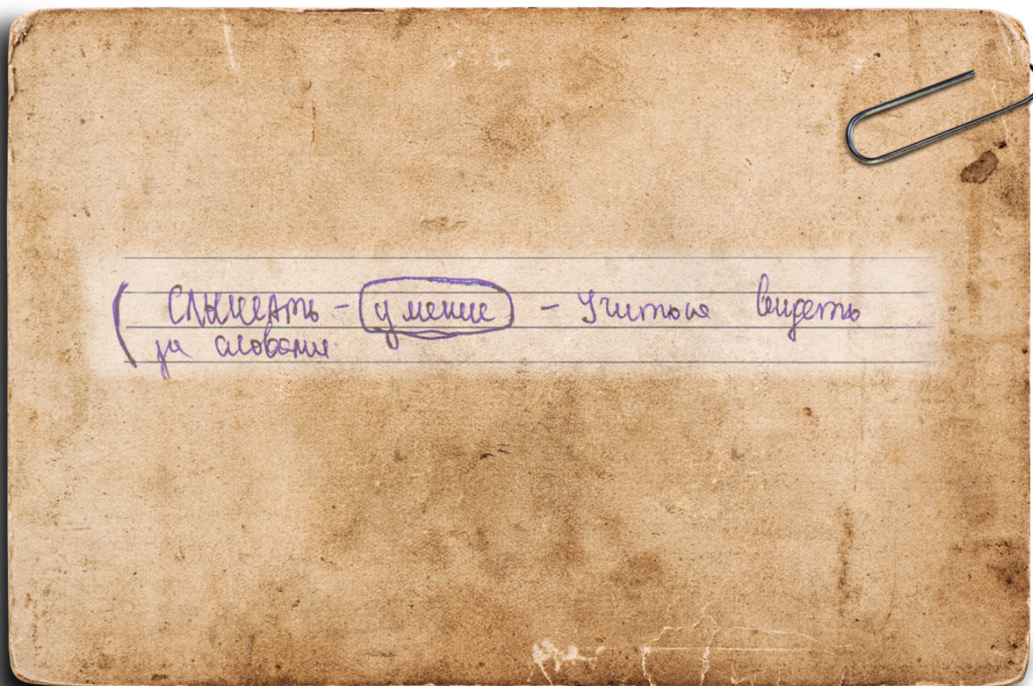 ( Слышать - умение - Учиться видеть
за словами